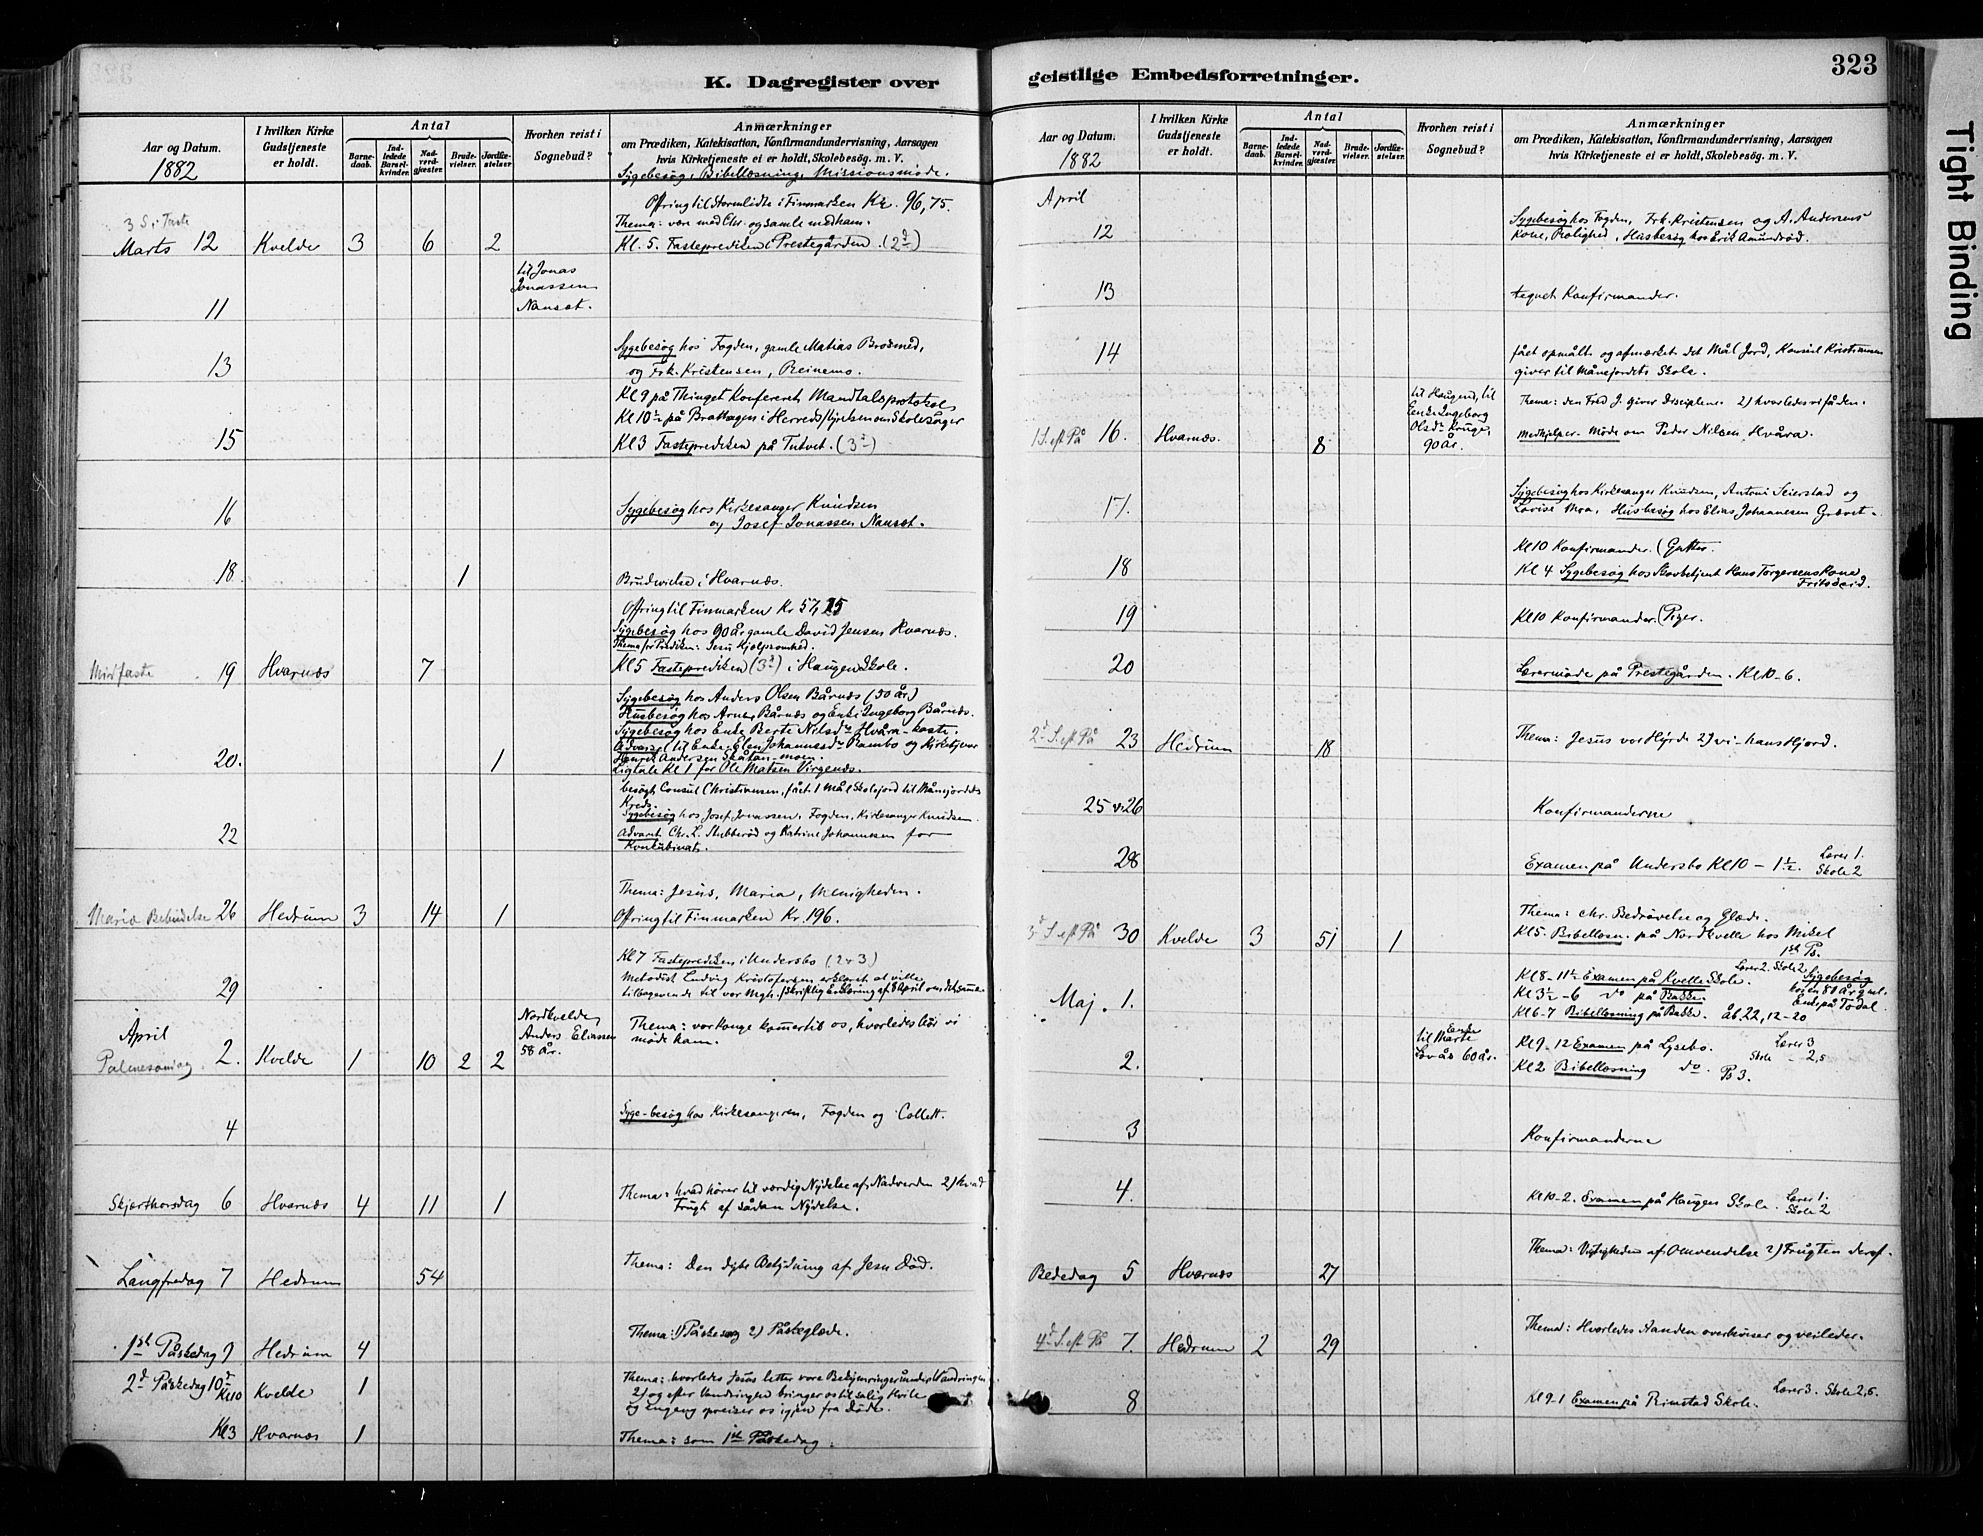 K. Dagregister over
Aar og Datum.
1882
I hvilken Kirke Gudstjeneste er holdt.
Antal
Barnedaab.
Indledede Barselkvinder.
Nadverdgjæster.
Brudevielser.
Jordfæstelser.
Hvorhen reist i Sognebud?
Anmærkninger
om Prædiken, Katekisation, Konfirmandundervisning, Aarsagen
hvis Kirketjeneste ei er holdt, Skolebesøg. m. V.
Sygebesøg, Bibellæsning, Missionsmøde.
3 S. i Faste
Marts 12 Kvelde 3 6 2
Offring til Stormlidte i Finmarken Kr. 96,75.
Thema: være med Chr. og samle med ham.
Kl. 5. Fasteprediken i Prestegården. (2d)
11
til Jonas
Jonassen
Nanset.
13
Sygebesøg hos Fogden, gamle Matias
og Frk. Kristensen, Reinemo.
15
Kl 9 på Thinget Konfereret Mandtalsprotokol
Kl 10½ på Brathagen i Herredsstyrelsen om Skolesager
Kl 3 Fasteprediken på Tutvet. (3d)
16
Sygebesøg hos Kirkesanger Knudsen
og Josef Jonassen Nanset.
18 1
Brudevielse i Hvarnæs.
Midfaste 19 Hvarnæs 7
Offring til Finmarken Kr 57,15
Sygebesøg hos 90 år gamle David Jensen Hvarnæs.
Thema for Prediken: Jesu Hjelpsomhed.
Kl 5 Fasteprediken (3d) i Haugen Skole.
20. 1
Sygebesøg hos Anders Olsen Bårnæs (50 år)
Husbesøg hos Arne Bårnæs og Enke Ingeborg Bårnæs.
Sygebesøg hos Enke Berte Nilsdtr Hvåra-kaste.
til Enke Elen Johannesdtr Rambo og Kirketjener
Henrik Andersen Skåtan-moen.
Ligtale Kl 1 for Ole Matsen Virgenæs.
22
besøgt Consul Christiansen, fået 1 Mål Skolejord til Månejordets
Kreds.
Sygebesøg hos Josef Jonassen, Fogden, Kirkesanger Knudsen
Advaret Chr. L. Stubberød og Katrine Johannesen for
Konkubinat.
Mariæ Bebudelse 26 Hedrum 3 14 1
Thema: Jesus, Maria, Menigheden.
Offring til Finmarken Kr. 196.
29
Kl 7 Fasteprediken i Undersbo (2 & 3)
Metodist Ludvig Kristofersen erklæret at ville
tilbagevende til vor Mgh. / skriftlig Erklæring af 8 April om det samme
April
Palmesøndag 2. Kvelde 1 10 2 2
Nordkvelde
Anders Eliassen
58 år.
Thema: vor Konge kommer til os, hvorledes bør vi
møde ham.
4
Syge-besøg hos Kirkesangeren, Fogden og Collett.
Skjærthorsdag 6 Hvarnæs 4 11 1
Thema: hvad hører til værdig Nydelse af Nadverden 2) hvad
Frugt af sådan Nydelse.
Langfredag 7 Hedrum 54
Thema: Den dybe Betydning af Jesu Død.
1st Påskedag 9 Hedrum 4
Thema: 1) Påskesorg 2) Påskeglæde.
2d Påskedag 10d
Kl 10 Kvelde 1
Thema: hvorledes Jesus letter vore Bekymringer under Vandringen
2) og efter Vandringen bringer os til salig Hvile
og engang opreiser os igjen fra Døde.
Kl 3 Hvarnæs 1
Thema: som 1st Påskedag.
geistlige Embedsforretninger.
323
Aar og Datum.
1882
I hvilken Kirke Gudstjeneste er holdt.
Antal
Barnedaab.
Indledede Barselkvinder.
Nadverdgjæster.
Brudevielser.
Jordfæstelser.
Hvorhen reist i Sognebud?
Anmærkninger
om Prædiken, Katekisation, Konfirmandundervisning, Aarsagen
hvis Kirketjeneste ei er holdt, Skolebesøg. m. V.
April
12
Sygebesøg hos Fogden, Frk. Kristensen og A. Andersens
Kone, Rolighed, Husbesøg hos Erik Amundrød.
13
tegnet Konfirmander.
14
fået opmålt og afmærket det Mål Jord, Konsul Kristiansen
giver til Månejordets Skole.
1 S. eft På 16. Hvarnæs. 8
til Haugen, til
Enke Ingeborg
Olsdtr
90 år.
Thema: den Fred J. giver Disciplene 2) hvorledes vi få den.
Medhjelper-Møde om Peder Nilsen Hvåra.
17.
Sygebesøg hos Kirkesanger Knudsen, Antoni Seierstad og
Lovise Moa. Husbesøg hos Elias Johannesen Grævet.
18
Kl 10 Konfirmander. (Gutter.
Kl 4 Sygebesøg hos Skovbetjent Hans Torgersens Kone
Fritsøeid.
19
Kl 10 Konfirmander. (Piger.
20
Lærermøde på Prestegården. Kl 10-6.
2d S. eft På 23 Hedrum 18
Thema: Jesus vor Hyrde 2) vi - hans Hjord.
25 & 26
Konfirmanderne
28
Examen på Undersbo Kl 10 - 1½. Lærer 1.
Skole 2
3d S. eft På 30 Kvelde 3 51 1
Thema: Chr. Bedrøvelse og Glæde.
Kl 5. Bibellæsn. på Nordkvelle hos Mikel
1st P.
Maj. 1.
Kl 8-11½ Examen på Kvelle Skole. Lærer 2. Skole 2. Sygebesøg
Kl 3½-6 do på Bakken 80 år gml.
Enke på Tødal
Kl 6-7 Bibellæsning på Bakke. Åb. 22, 12-20
2.
til Enke
Marte
Løvås 60 år.
Kl 9-12 Examen på Lysebo. Lærer 3
Skole - 2,5
Kl 2 Bibellæsning do. Ps 3.
3
Konfirmanderne
4.
Kl 10-2. Examen på Haugen Skole. Lærer 1.
Skole 2
Bededag 5 Hvarnæs 27
Thema: Vigtigheden af Omvendelse 2) Frugten deraf.
4d S. eft På 7. Hedrum 2 29
Thema: Hvorledes Aanden overbeviser og veileder.
8
Kl 9-1 Examen på Rimstad Skole. Lærer 3. Skole 2,5.
Tight Binding